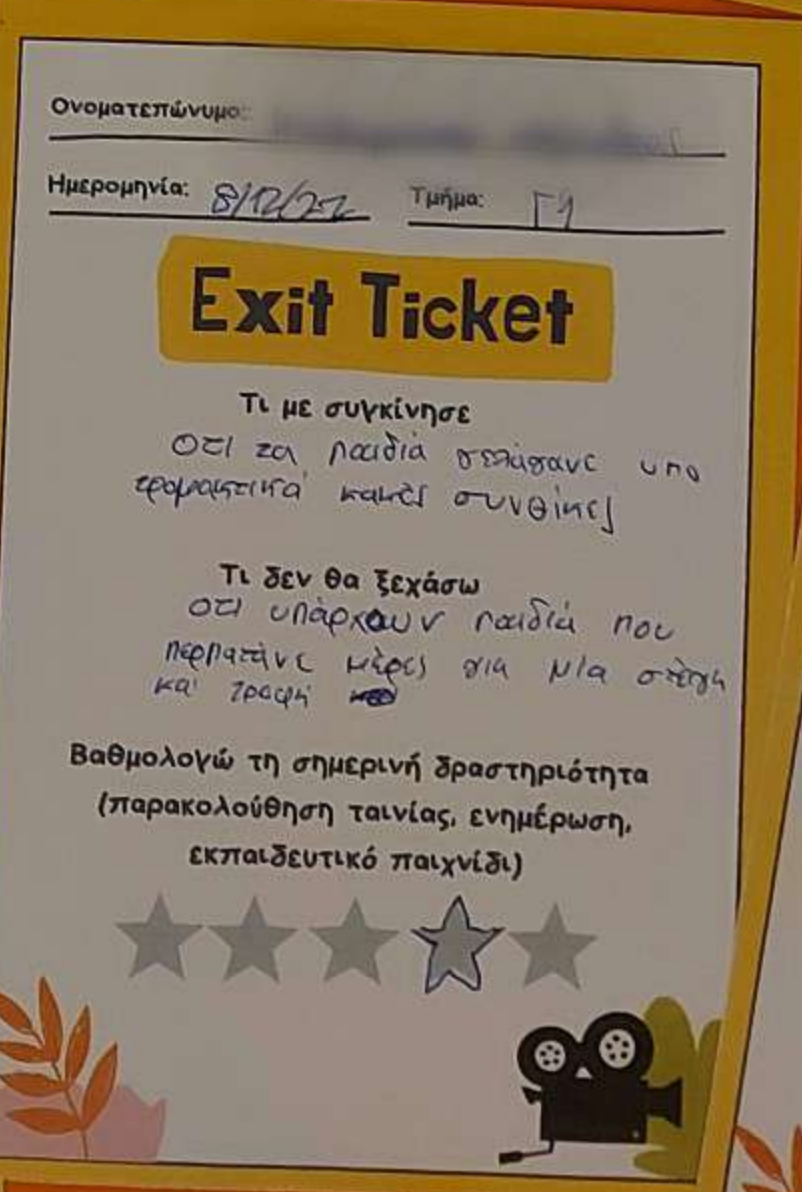 Ονοματεπώνυμο:
Ημερομηνία: 8/12/22 Τμήμα: Γ1
Exit Ticket
Τι με συγκίνησε
οτι τα παιδιά γελάγανε υπο
τρομακτικά κακές συνθίκες
Τι δεν θα ξεχάσω
οτι υπάρχουν παιδιά που
περπατάνε μέρες για μία στέγη
και τροφή
Βαθμολογώ τη σημερινή δραστηριότητα
(παρακολούθηση ταινίας, ενημέρωση,
εκπαιδευτικό παιχνίδι)